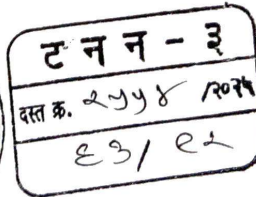 ट न न - ३
दस्त क्र. २५५४ /२०२५
६३/९२